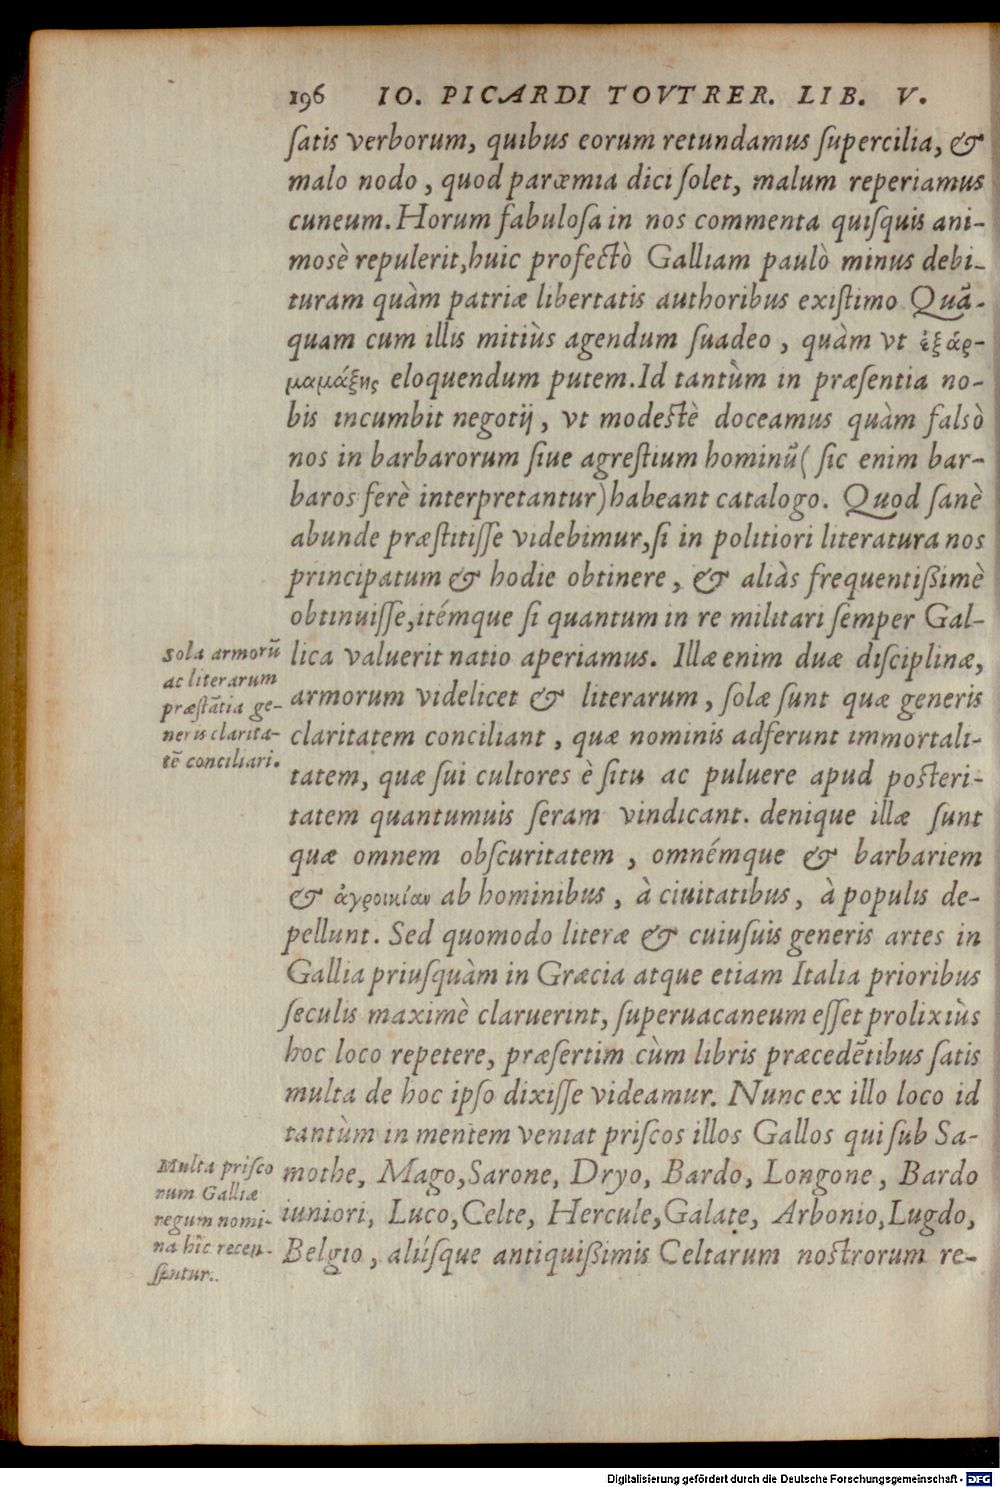 196 IO. PICARDI TOVTRER. LIB. V.
ſatis verborum, quibus eorum retundamus ſupercilia, &
malo nodo, quod parœmia dici ſolet, malum reperiamus
cuneum. Horum fabuloſa in nos commenta quiſquis ani-
mosè repulerit, huic profectò Galliam paulò minus debi-
turam quàm patriæ libertatis authoribus exiſtimo Quā-
quam cum illis mitiùs agendum ſuadeo, quàm vt ἐξ ἁρ-
μαμάξης eloquendum putem. Id tantùm in præſentia no-
bis incumbit negotij, vt modeſtè doceamus quàm falsò
nos in barbarorum ſiue agreſtium hominū (ſic enim bar-
baros ferè interpretantur) habeant catalogo. Quod ſanè
abunde præſtitiſſe videbimur, ſi in politiori literatura nos
principatum & hodie obtinere, & aliàs frequentißimè
obtinuiſſe, itémque ſi quantum in re militari ſemper Gal-
lica valuerit natio aperiamus. Illæ enim duæ diſciplinæ,
armorum videlicet & literarum, ſolæ ſunt quæ generis
claritatem conciliant, quæ nominis adferunt immortali-
tatem, quæ ſui cultores è ſitu ac puluere apud poſteri-
tatem quantumuis ſeram vindicant. denique illæ ſunt
quæ omnem obſcuritatem, omnémque & barbariem
& ἀγροικίαν ab hominibus, à ciuitatibus, à populis de-
pellunt. Sed quomodo literæ & cuiuſuis generis artes in
Gallia priuſquàm in Græcia atque etiam Italia prioribus
ſeculis maximè claruerint, ſuperuacaneum eſſet prolixiùs
hoc loco repetere, præſertim cùm libris præcedētibus ſatis
multa de hoc ipſo dixiſſe videamur. Nunc ex illo loco id
tantùm in mentem veniat priſcos illos Gallos qui ſub Sa-
mothe, Mago, Sarone, Dryo, Bardo, Longone, Bardo
iuniori, Luco, Celte, Hercule, Galate, Arbonio, Lugdo,
Belgio, aliíſque antiquißimis Celtarum noſtrorum re-
Sola armorū
ac literarum
præſtātia ge-
neris clarita-
tē conciliari.
Multa priſco
rum Galliæ
regum nomi-
na hîc recen-
ſentur.
Digitalisierung gefördert durch die Deutsche Forschungsgemeinschaft - DFG